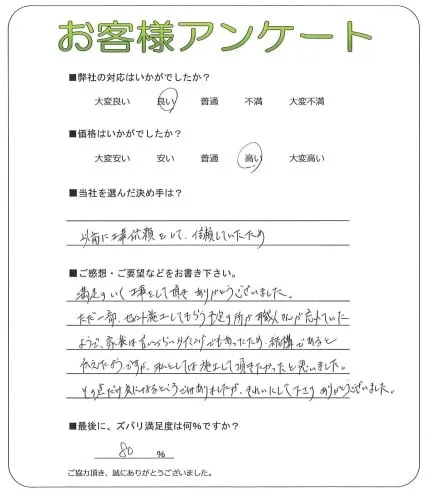 お客様アンケート
■弊社の対応はいかがでしたか？
大変良い 良い 普通 不満 大変不満
■価格はいかがでしたか？
大変安い 安い 普通 高い 大変高い
■当社を選んだ決め手は？
以前に工事依頼をして、信頼していたため
■ご感想・ご要望などをお書き下さい。
満足のいく工事をして頂きありがとうございました。
ただ一部、施工してもらう予定の所が職人さんが忘れていた
ようで、家族は言いづらいタイミングでもあったため、結構であると
伝えたようですが、私としては施工して頂きたかったと思いました。
その点だけ気になるところではありましたが、きれいにして下さりありがとうございました。
■最後に、ズバリ満足度は何％ですか？
80 ％
ご協力頂き、誠にありがとうございました。